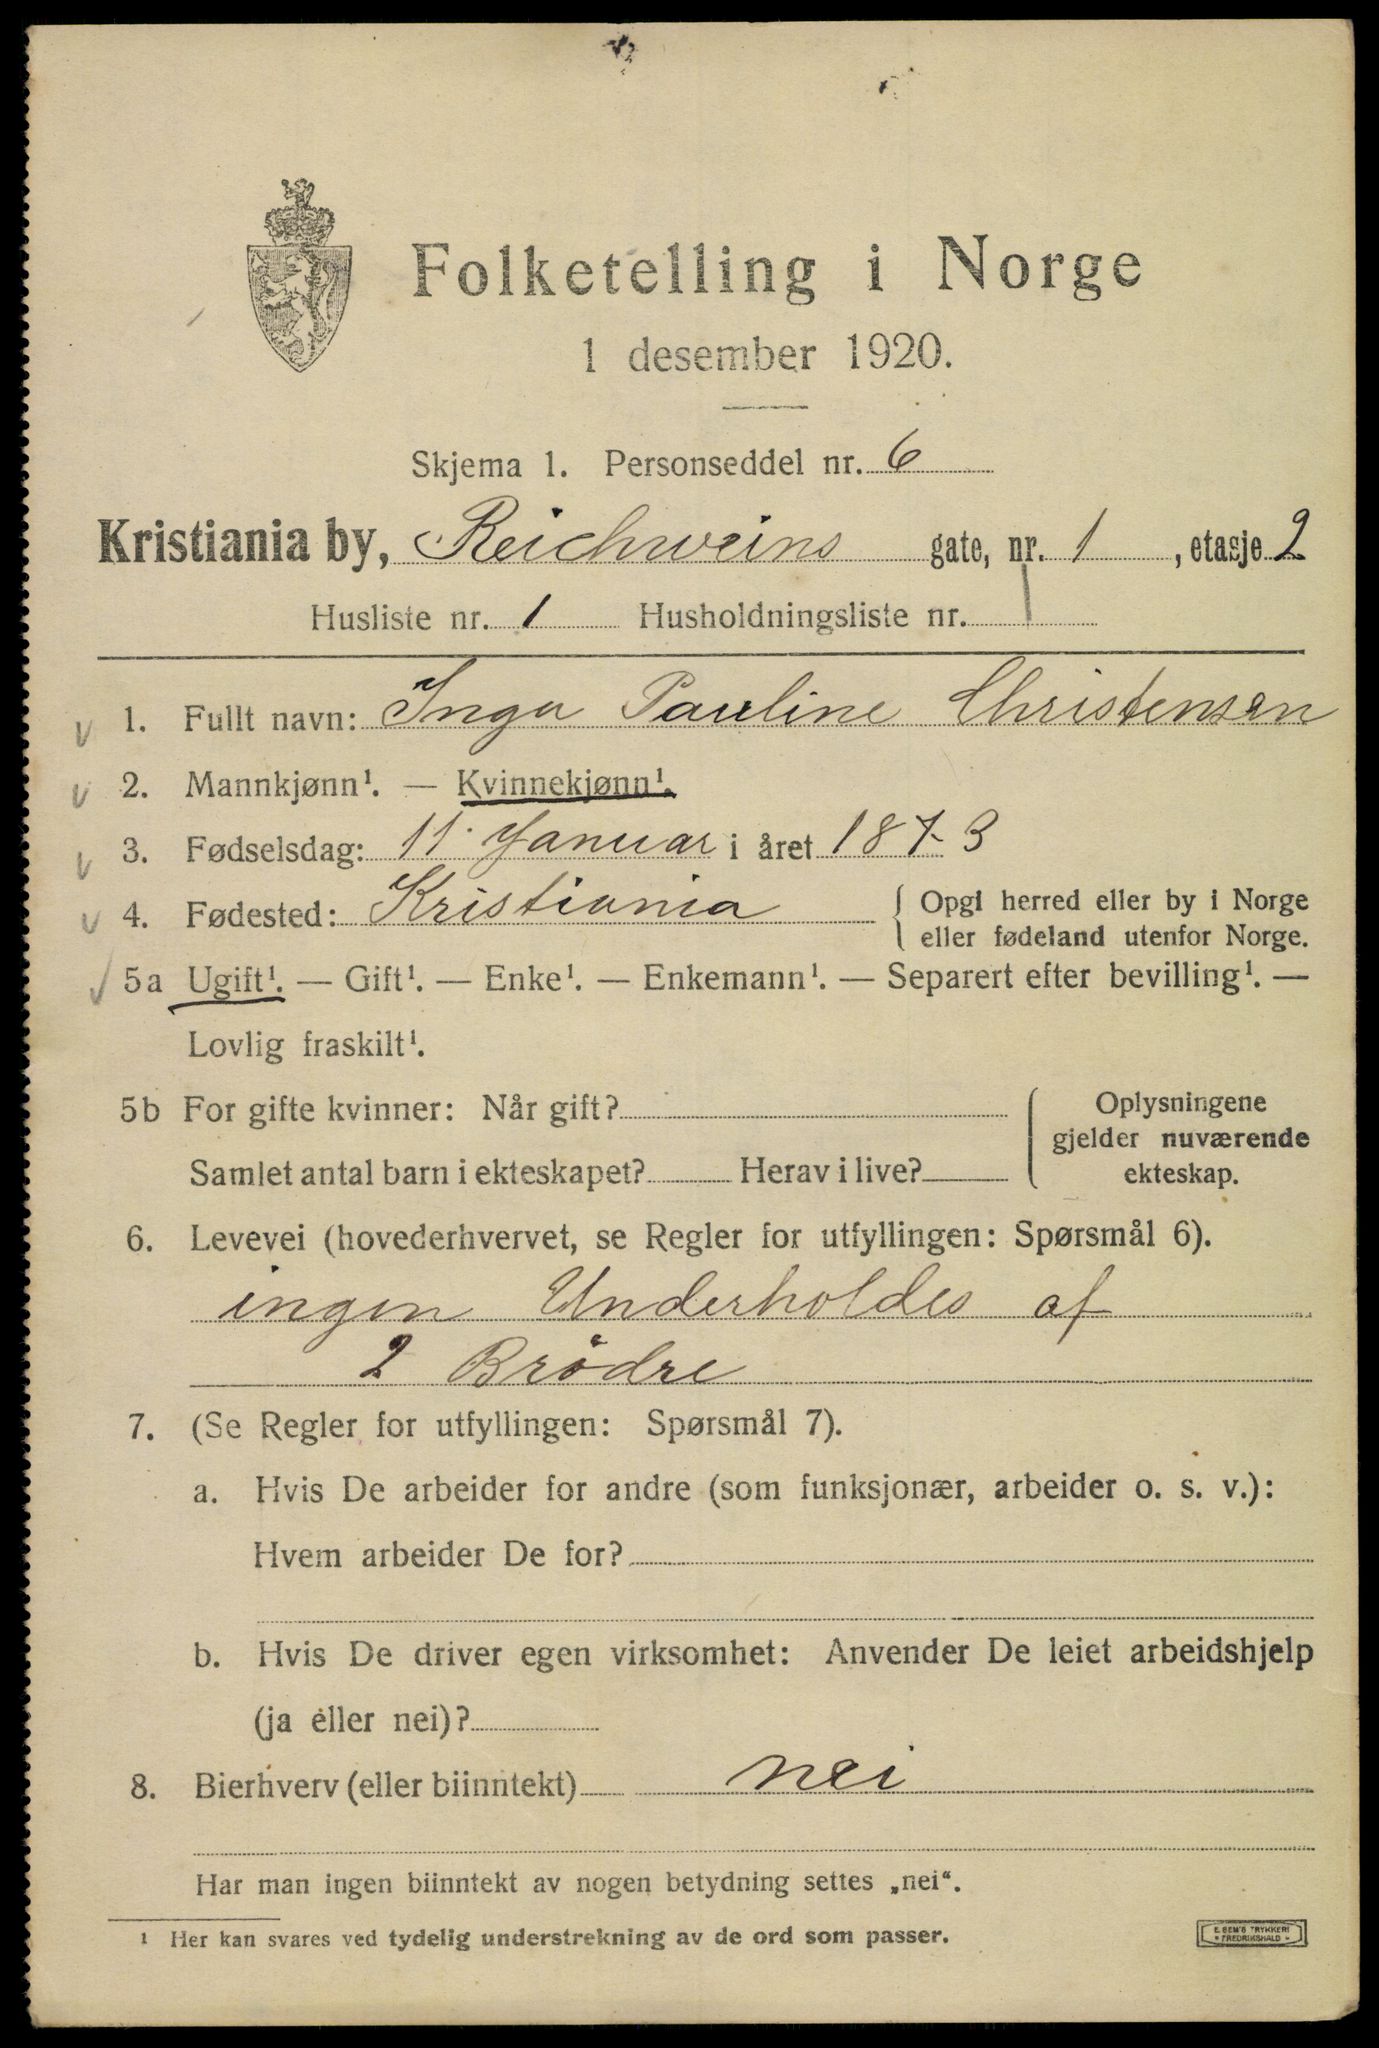 Folketelling i Norge
1 desember 1920.
Skjema 1. Personseddel nr. 6
Kristiania by, Reichweins gate, nr. 1, etasje 2
Husliste nr. 1 Husholdningsliste nr. 1
1. Fullt navn: Inga Pauline Christensen
2. Mannkjønn¹. — Kvinnekjønn¹.
3. Fødselsdag: 11. Januar i året 1873
4. Fødested: Kristiania { Opgi herred eller by i Norge
eller fødeland utenfor Norge.
5a Ugift¹. — Gift¹. — Enke¹. — Enkemann¹. — Separert efter bevilling¹. —
Lovlig fraskilt¹.
5b For gifte kvinner: Når gift? { Oplysningene
gjelder nuværende
Samlet antal barn i ekteskapet? Herav i live? ekteskap.
6. Levevei (hovederhvervet, se Regler for utfyllingen: Spørsmål 6).
ingen Underholdes af
2 Brödre
7. (Se Regler for utfyllingen: Spørsmål 7).
a. Hvis De arbeider for andre (som funksjonær, arbeider o. s. v.):
Hvem arbeider De for?
b. Hvis De driver egen virksomhet: Anvender De leiet arbeidshjelp
(ja eller nei)?
8. Bierhverv (eller biinntekt) nei
Har man ingen biinntekt av nogen betydning settes „nei“.
¹ Her kan svares ved tydelig understrekning av de ord som passer.
E. SEM'S TRYKKERI
FREDRIKSHALD